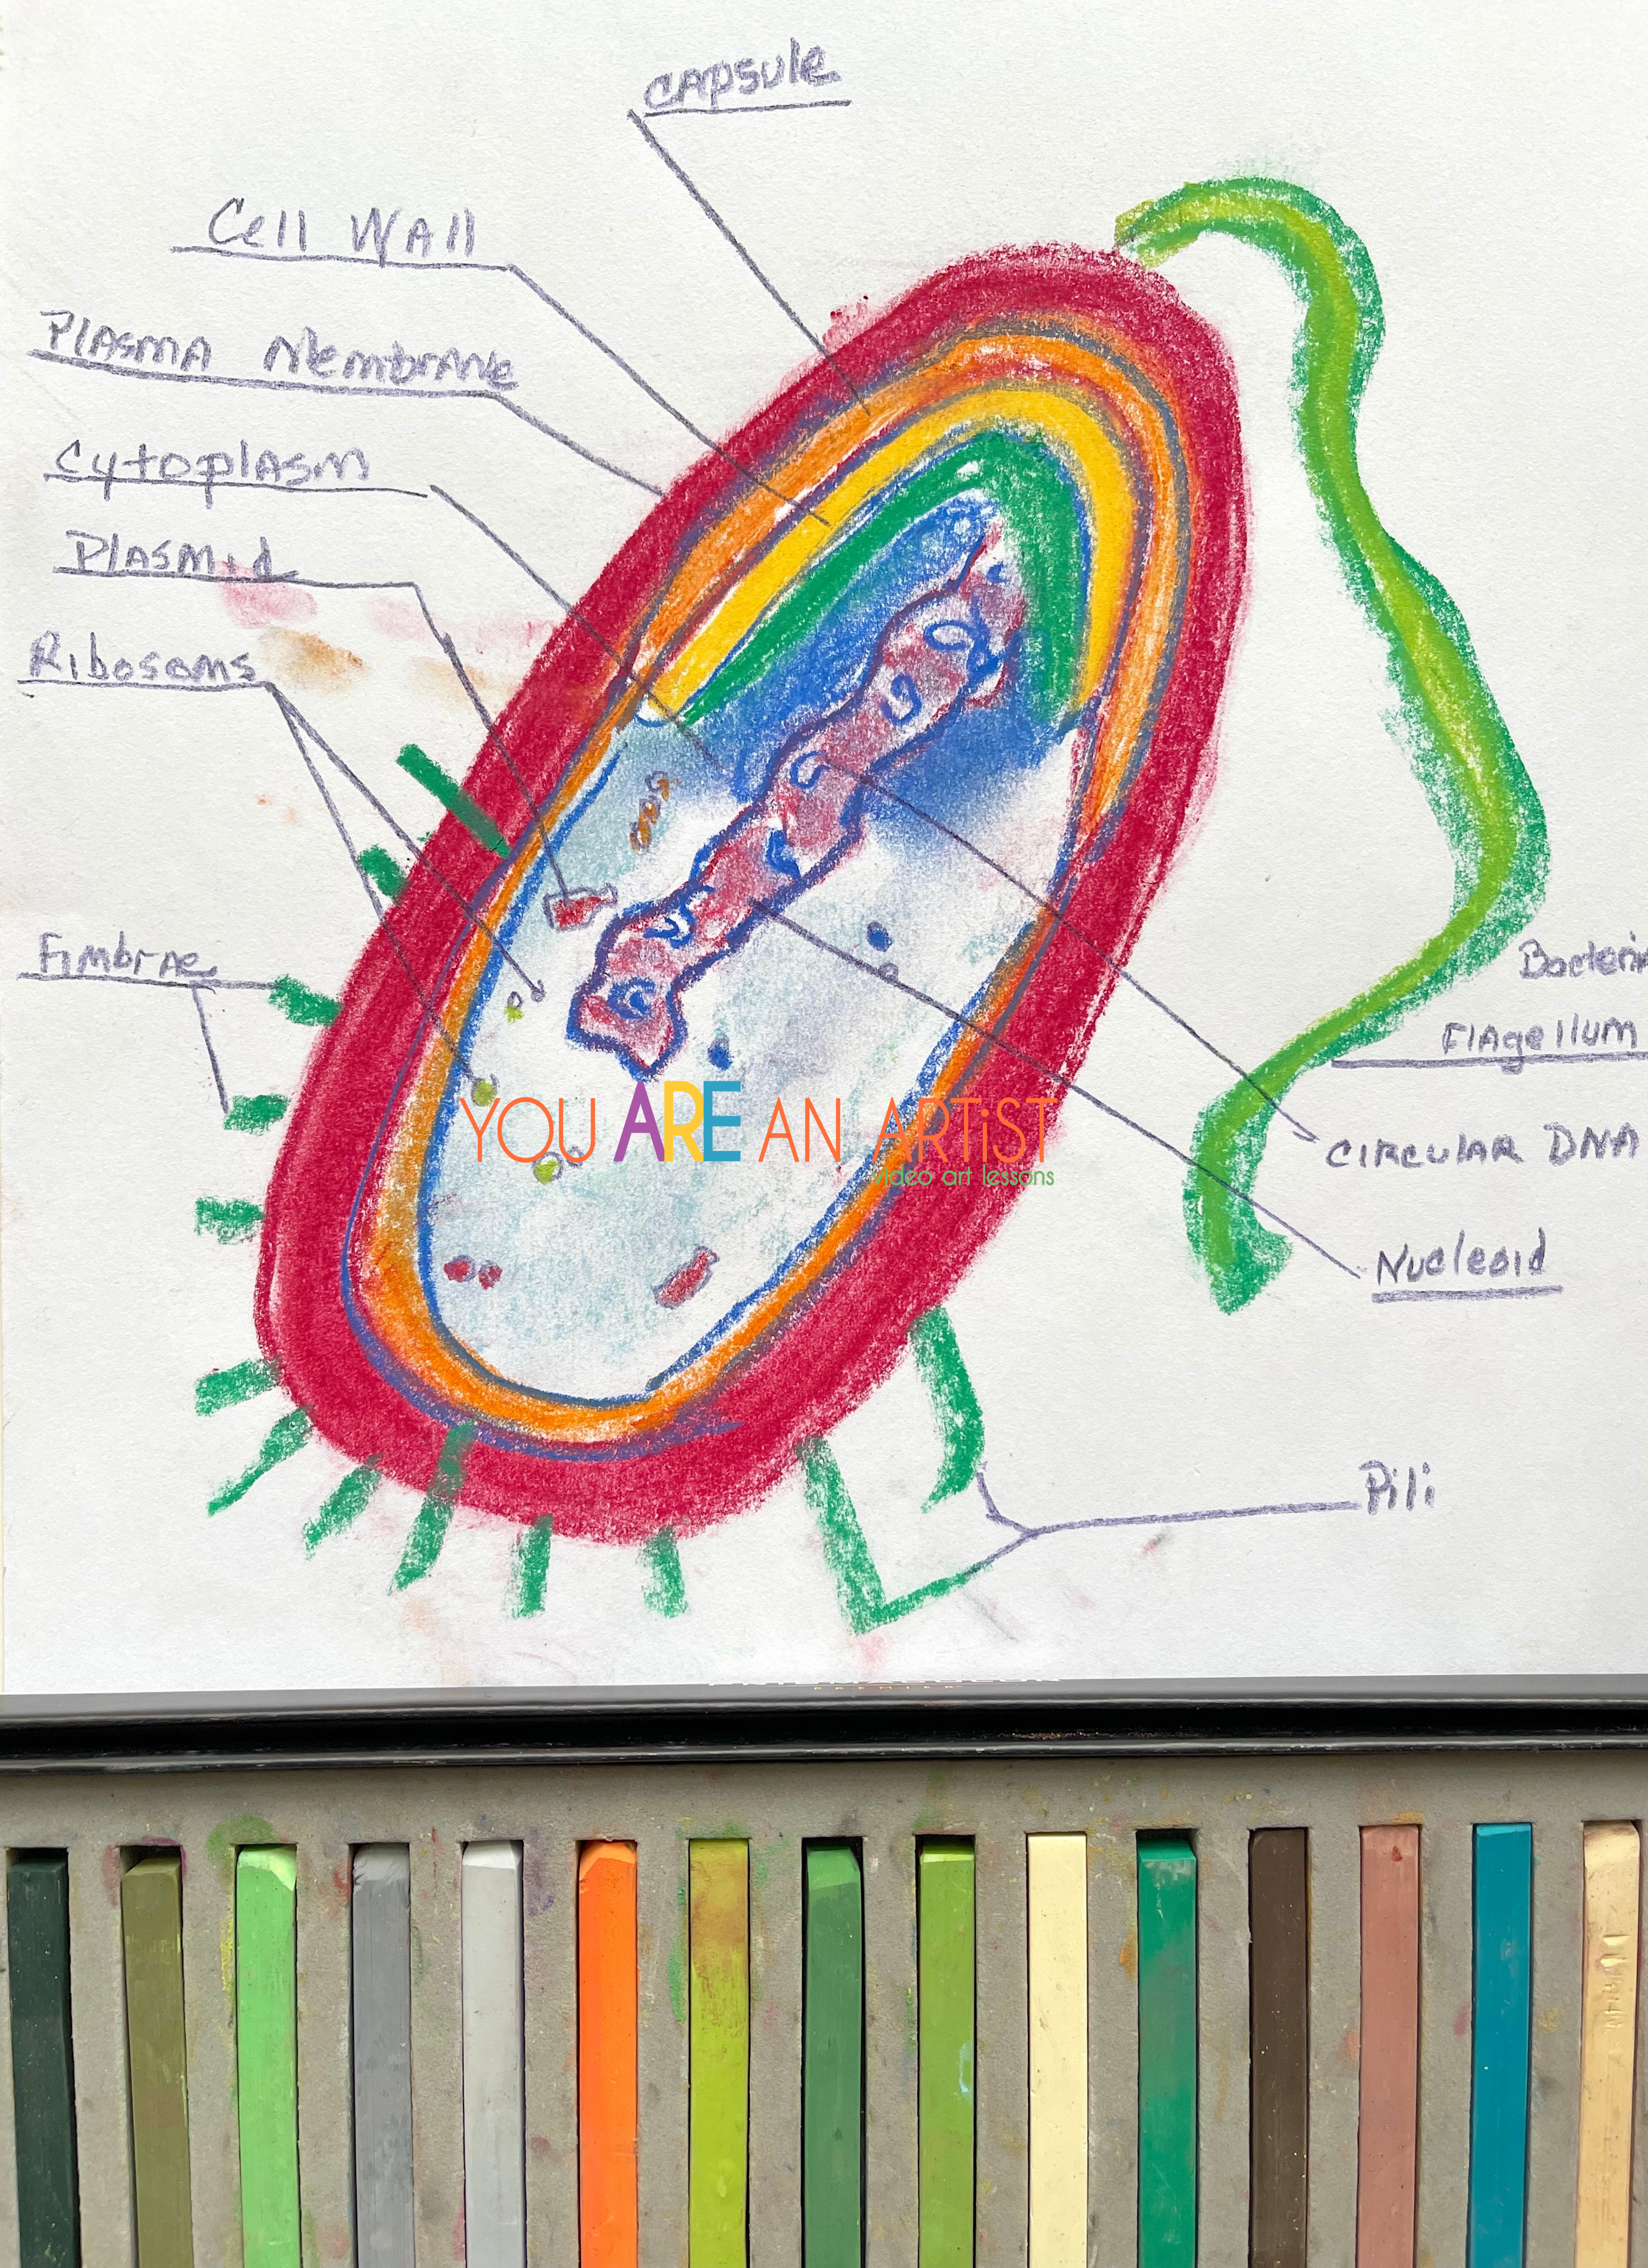 Capsule
Cell Wall
Plasma Membrane
Cytoplasm
Plasmid
Ribosoms
Fimbrae
Bacteria
Flagellum
YOU ARE AN ARTiST
video art lessons
Circular DNA
Nucleoid
Pili